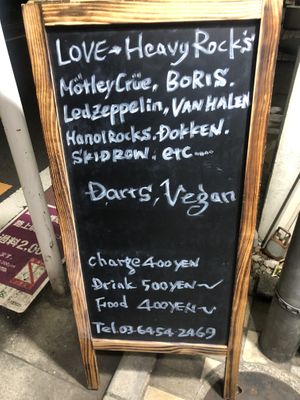 LOVE→HeavyRock's
MötleyCrüe, BORIS.
Ledzeppelin, VAN HALEN
HanoiRocks. DOKKEN.
SKIDROW. etc......
Darts, Vegan
Charge 400YEN
Drink 500YEN〜
Food 400YEN〜
Tel.03-6454-2469